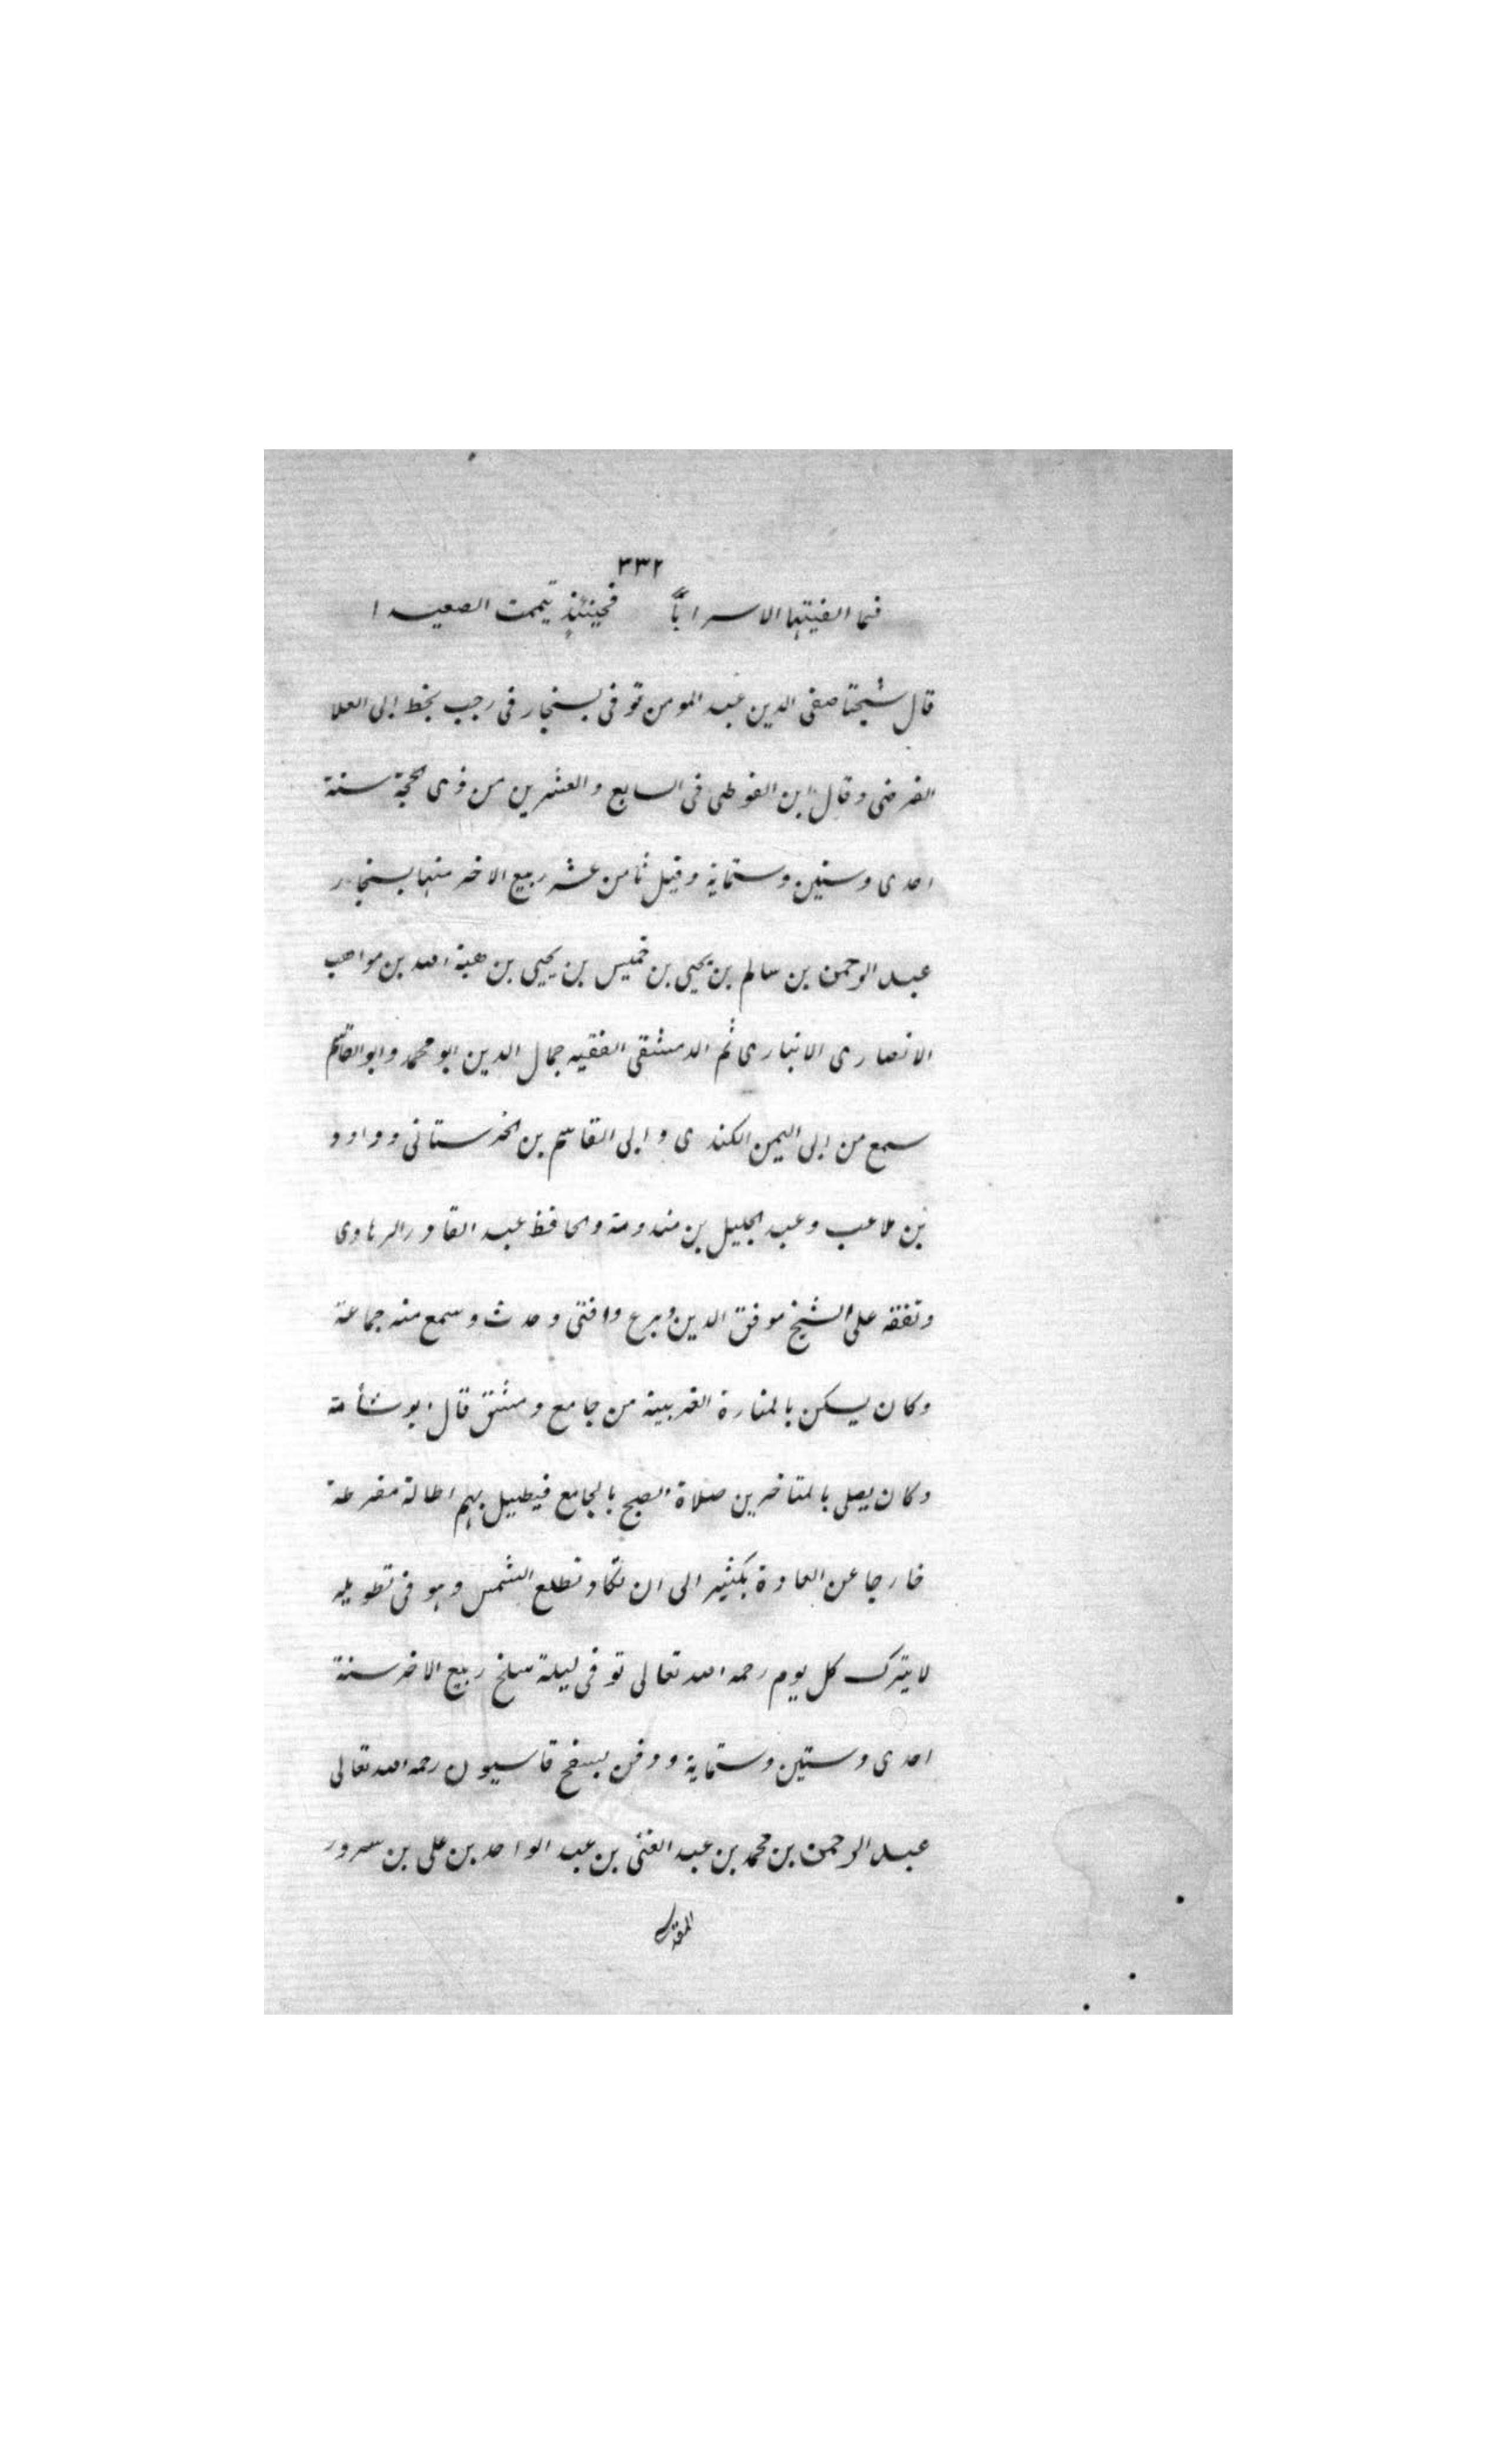 ٣٣٢
فما الفيتها الا سرابًا فحينئذٍ تيممت الصعيدا
قال شيخنا صفى الدين عبد المومن توفى بسنجار فى رجب بخط ابى العلا
الفرضى وقال ابن الفوطى فى السابع والعشرين من ذى الحجة سنة
احدى وستين وستماية وقيل ثامن عشر ربيع الاخر منها بسنجار
عبد الرحمن بن سالم بن يحيى بن خميس بن يحيى بن هبة الله بن مواهب
الانصارى الانبارى ثم الدمشقى الفقيه جمال الدين ابو محمد وابو القاسم
سمع من ابى اليمن الكندى وابى القاسم بن الخرستانى وداود
بن ملاعب وعبد الجليل بن مندومة والحافظ عبد القادر الرهاوى
وتفقه على الشيخ موفق الدين وبرع وافتى وحدث وسمع منه جماعة
وكان يسكن بالمنارة الغربية من جامع دمشق قال ابو شامة
وكان يصلى بالمتاخرين صلاة الصبح بالجامع فيطيل بهم اطالة مفرطة
خارجا عن العادة بكثير الى ان تكاد تطلع الشمس وهو فى تطويله
لا يترك كل يوم رحمه الله تعالى توفى ليلة سلخ ربيع الاخر سنة
احدى وستين وستماية ودفن بسفح قاسيون رحمه الله تعالى
عبد الرحمن بن محمد بن عبد الغنى بن عبد الواحد بن على بن سرور
المقدسى